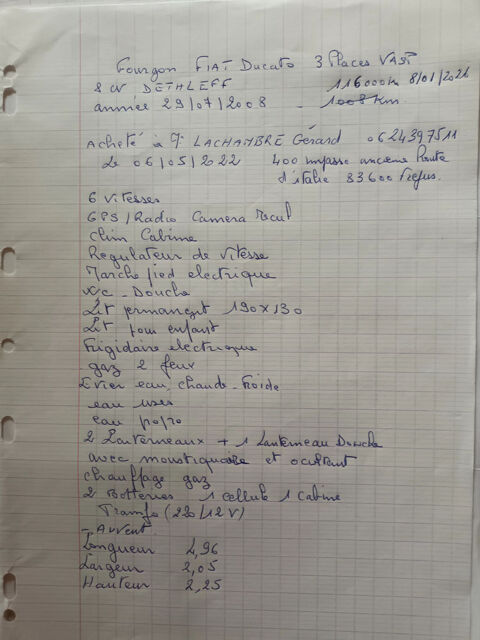 Fourgon FIAT Ducato 3 Places VASP
8 CV DETHLEFF 116000Km 8/01/2026
année 29/07/2008 - 1008 Km
Acheté à Mr LACHAMBRE Gérard 0624397511
Le 06/05/2022 400 impasse ancienne Route
d'italie 83600 Frejus.
6 vitesses
GPS/Radio Camera Recul
Clim Cabine
Regulateur de Vitesse
Marche pied electrique
Wc - Douche
Lit permanent 190 x 130
Lit pour enfant
Frigidaire electrique
gaz 2 feux
Evier eau, chaude-froide
eau uses
eau
2 Lanterneaux + 1 Lanterneau Douche
avec moustiquaire et occultant
chauffage gaz
2 Batteries 1 cellule 1 cabine
Transfo (220/12V)
- Auvent
Longueur 4,96
Largeur 2,05
Hauteur 2,25